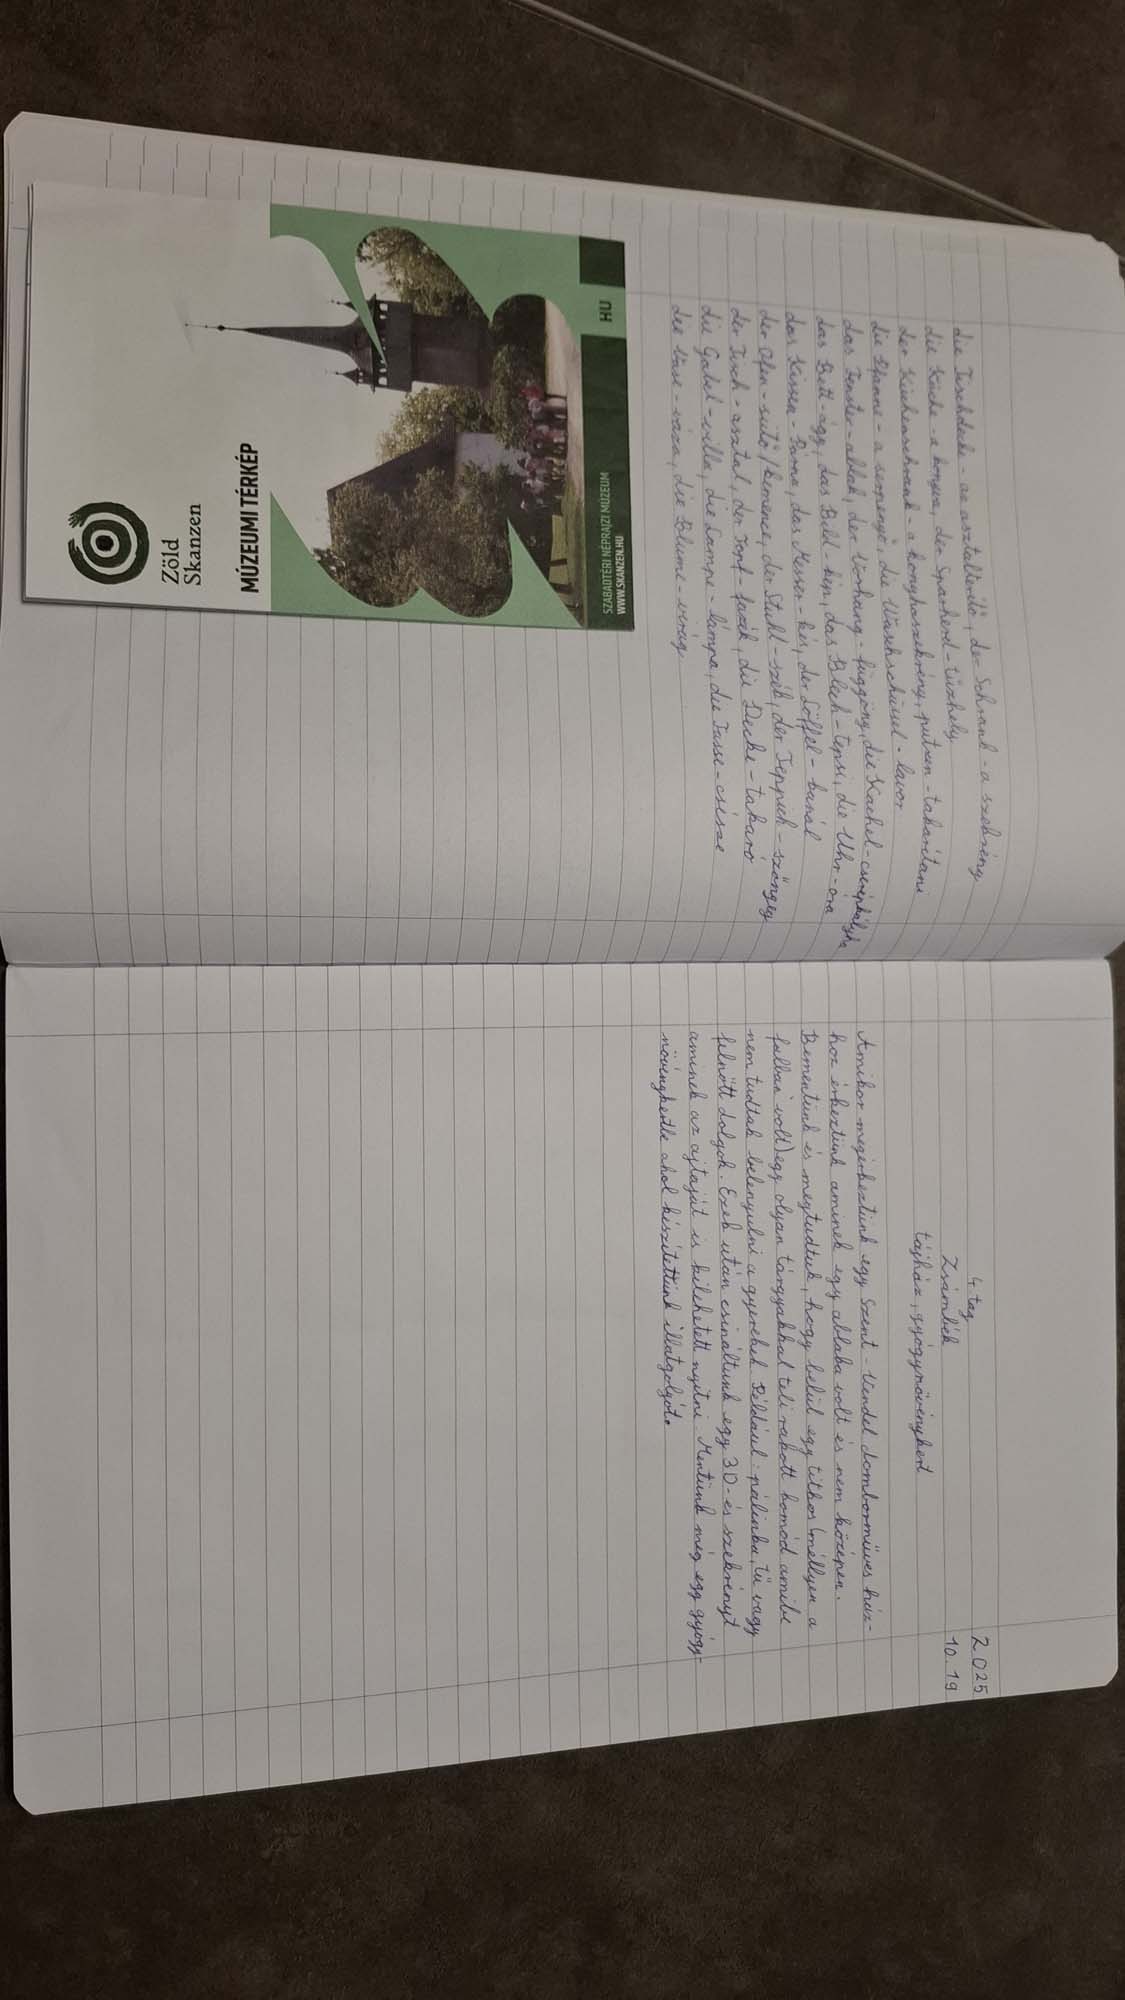 die Tischdecke - az asztalterítő, der Schrank - a szekrény
die Küche - a konyha, der Sparherd - tűzhely
der Küchenschrank - a konyhaszekrény, putzen - takarítani
die Pfanne - a serpenyő, die Waschschüssel - lavor
das Fenster - ablak, der Vorhang - függöny, die Kachel - cserépkályha
das Bett - ágy, das Bild - kép, das Blech - tepsi, die Uhr - óra
das Kissen - Párna, das Messer - kés, der Löffel - kanál
der Ofen - sütő/kemence, der Stuhl - szék, der Teppich - szőnyeg
der Tisch - asztal, der Topf - fazék, die Decke - takaró
die Gabel - villa, die Lampe - lámpa, die Tasse - csésze
die Vase - váza, die Blume - virág
HU
SZABADTÉRI NÉPRAJZI MÚZEUM
WWW.SKANZEN.HU
MÚZEUMI TÉRKÉP
Zöld
Skanzen
2025
10.19
4. tag
Zsámbék
tájház, gyógynövénykert
Amikor megérkeztünk egy Szent-Vendel domborműves ház-
hoz érkeztünk aminek egy ablaka volt és nem középen.
Bementünk és megtudtuk, hogy belül egy titkos (mélyen a
falban volt) egy olyan tárgyakkal teli rakott komód amibe
nem tudtak belenyulni a gyerekek. Például: pálinka, tű vagy
felnőtt dolgok. Ezek után csináltunk egy 3D-és szekrényt
aminek az ajtaját is kilehetett nyitni. Mentünk még egy gyógy-
növénykertbe ahol készítettünk illatgolyót.